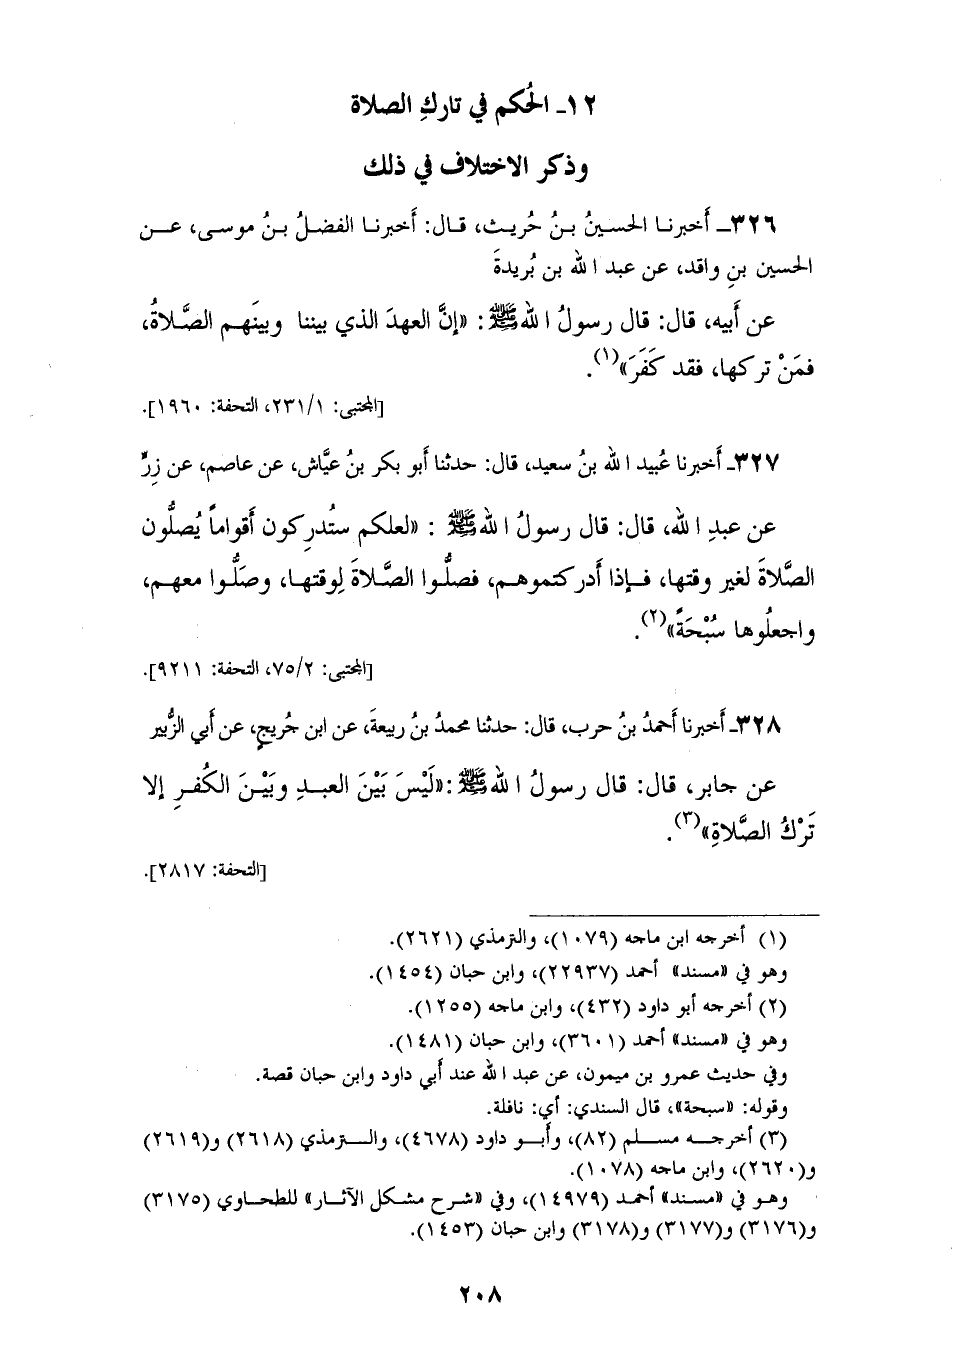 ١٢ـ الحُكم في تاركِ الصلاة
وذكر الاختلاف في ذلك
٣٢٦ـ أَخبرنـا الحسينُ بـنُ حُريـث، قـال: أَخبرنـا الفضـلُ بـنُ موسـى، عـن
الحسين بنِ واقد، عن عبد الله بن بُريدةَ
عن أَبيه، قال: قال رسولُ اللهﷺ: «إنَّ العهدَ الذي بيننا وبينَهـم الصَّـلاةُ،
فمَنْ تركها، فقد كَفَرَ»(١).
[المجتبى: ٢٣١/١، التحفة: ١٩٦٠].
٣٢٧ـ أَخبرنا عُبيد الله بنُ سعيد، قال: حدثنا أَبو بكر بنُ عيَّاش، عن عاصم، عن زِرٍّ
عن عبدِ الله، قال: قال رسولُ اللهﷺ : «لعلكم ستُدرِكون أَقواماً يُصلُّون
الصَّلاةَ لغير وقتها، فـإذا أَدركتموهـم، فصلُّـوا الصَّـلاةَ لِوقتهـا، وصَلُّـوا معهـم،
واجعلُوها سُبْحَةً»(٢).
[المجتبى: ٧٥/٢، التحفة: ٩٢١١].
٣٢٨ـ أَخبرنا أَحمدُ بنُ حرب، قال: حدثنا محمدُ بنُ ربيعةَ، عن ابن جُريجٍ، عن أَبي الزُّبير
عن جابر، قال: قال رسولُ اللهﷺ:«لَيْسَ بَيْنَ العبـدِ وبَيْـنَ الكُفـرِ إلا
تَرْكُ الصَّلاةِ»(٣).
[التحفة: ٢٨١٧].
(١) أخرجه ابن ماجه (١٠٧٩)، والترمذي (٢٦٢١).
وهو في «مسند» أحمد (٢٢٩٣٧)، وابن حبان (١٤٥٤).
(٢) أخرجه أبو داود (٤٣٢)، وابن ماجه (١٢٥٥).
وهو في «مسند» أحمد (٣٦٠١)، وابن حبان (١٤٨١).
وفي حديث عمرو بن ميمون، عن عبد الله عند أَبي داود وابن حبان قصة.
وقوله: «سبحة»، قال السندي: أي: نافلة.
(٣) أخرجـه مسـلم (٨٢)، وأَبـو داود (٤٦٧٨)، والـترمذي (٢٦١٨) و(٢٦١٩)
و(٢٦٢٠)، وابن ماجه (١٠٧٨).
وهـو في «مسـند» أحمد (١٤٩٧٩)، وفي «شرح مشكل الآثـار» للطحاوي (٣١٧٥)
و(٣١٧٦) و(٣١٧٧) و(٣١٧٨) وابن حبان (١٤٥٣).
٢٠٨